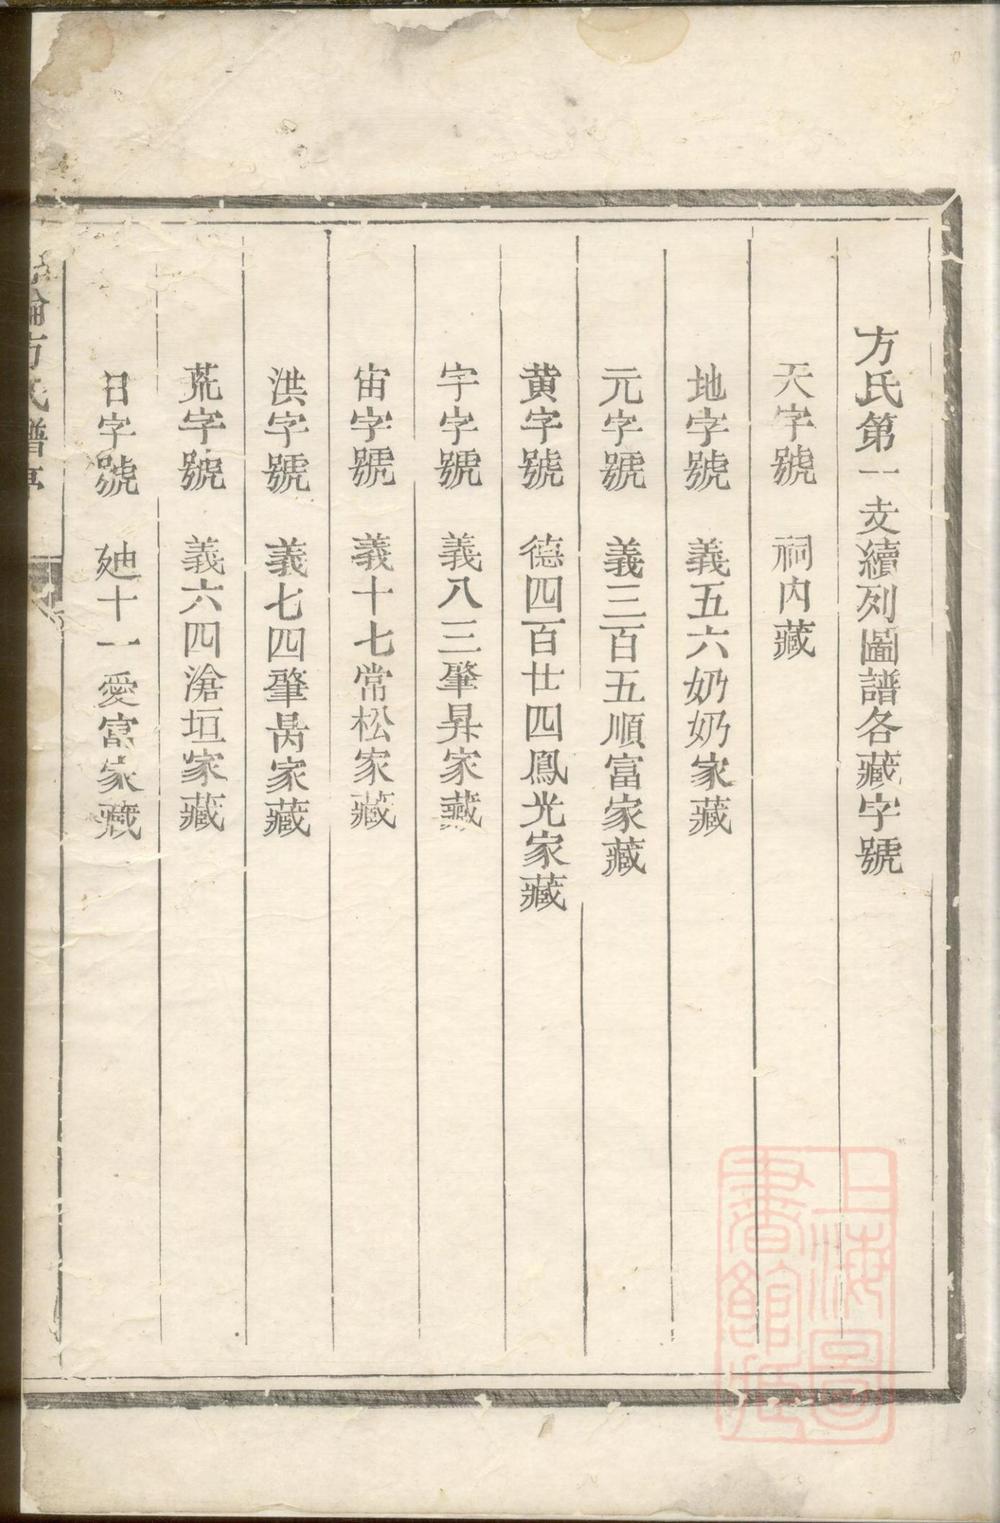 方氏第一支續列圖譜各藏字號
天字號 祠內藏
地字號 義五六奶奶家藏
元字號 義三百五順富家藏
黄字號 德四百廿四鳳光家藏
宇字號 義八三肇昇家藏
宙字號 義十七常松家藏
洪字號 義七四肇昺家藏
荒字號 義六四滄垣家藏
日字號 廸十一愛富家藏
方氏譜
上海圖書館藏